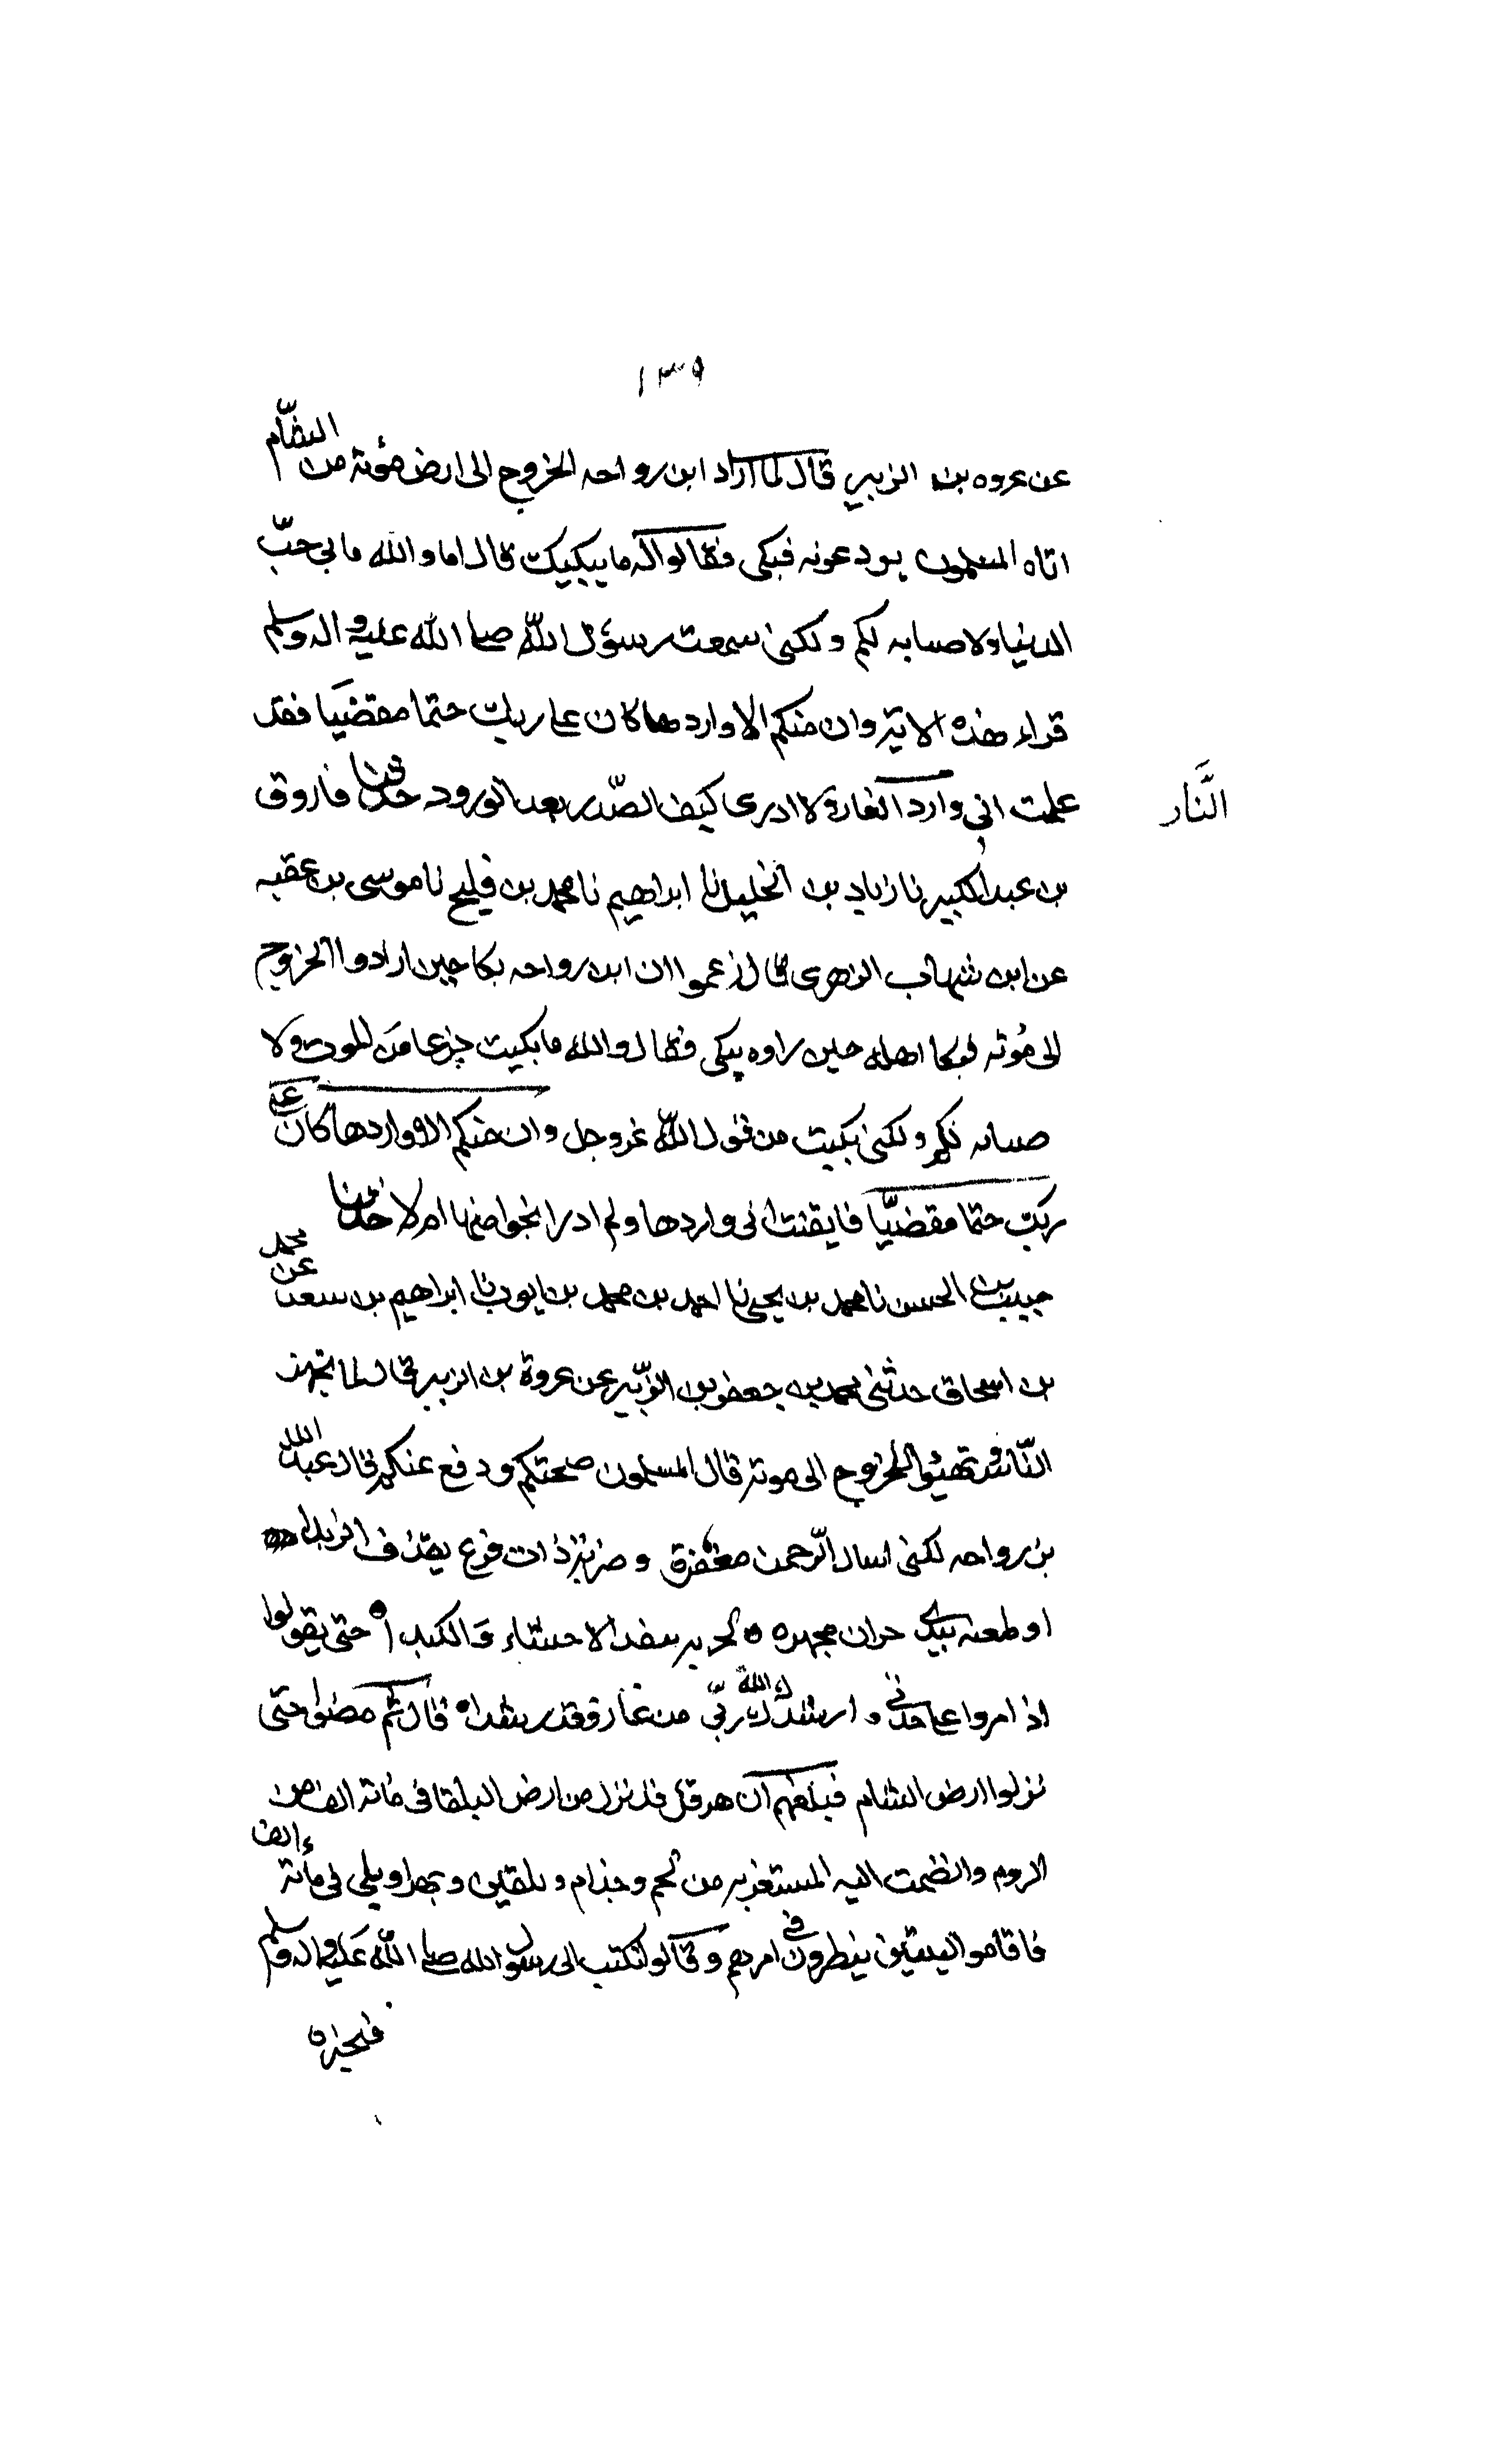 ١٣٩
عن عروه بن الزبير قال لما اراد ابن رواحه الخروج الى ارض مؤته من الشام
اتاه المسلمون يودعونه فبكى فقالوا له ما يبكيك قال اما والله ما بي حبّ
الدنيا ولا صبابه لكم ولكنى سمعت رسول اللّه صلى الله عليه واله وسلم
قراء هذه الاية وان منكم الا واردها كان على ربك حتما مقضيا فقد
علمت انى وارد النار ولا ادرى كيف الصّدر بعد الورود حدثنا فاروق
النَّار
بن عبد الكبير نا زياد بن الخليل نا ابراهيم نا محمد بن فليح نا موسى بن عقبه
عن ابن شهاب الزهرى قال زعموا ان ابن رواحه بكا حين ارادوا الخروج
الى مُوته فبكا اهله حين راوه يبكى فقال والله ما بكيت جزعا من الموت ولا
صبابه لكم ولكنى بكيت من قول اللّه عز وجل وان منكم الا واردها كان على
ربك حتما مقضيّا فايقنت انى واردها ولم ادر انجوا منها ام لا حدثنا
حبيب بن الحسن نا محمد بن يحيى نا احمد بن محمد بن ايوب نا ابراهيم بن سعد عن محمد
بن اسحاق حدثنى محمد بن جعفر بن الزّبير عن عروة بن الزبير قال لما تجهز
النّاس وتهيئوا للخروج الى موته قال المسلمون صحبتكم ودفع عنكم قال عبد الله
بن رواحه لكنى اسال الرّحمن مغفرة وضربة ذات فرع يقذف الزبدا
او طعنه بيدى حران مجهزه بحربه ينفد الاحشاء والكبدا حتى يقولوا
اذا مروا على جدثى ارشدك الله ربّى من غاز وقد رشدا قال ثم مضوا حتى
نزلوا ارض الشام فبلغهم ان هرقل قد نزل من ارض البلقا فى مائة الف من
الروم وانضمت اليه المستعربه من لخم وجذام وبلقين وبهرا وبلي فى مائة الف
فاقاموا ليلتين ينظرون فى امرهم وقالوا نكتب الى رسول الله صلى اللّه عَليه واله وسلم
فنخبره